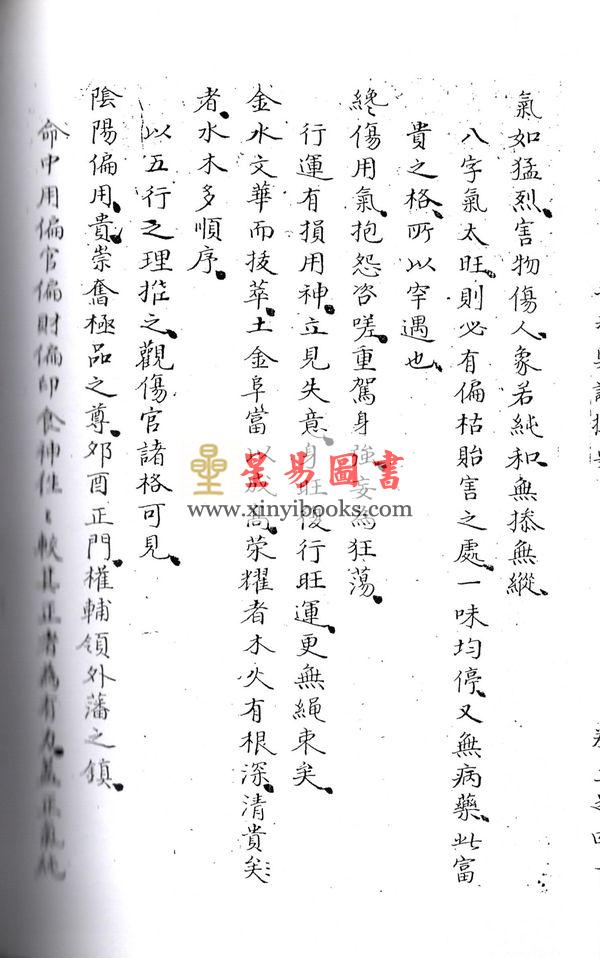 氣如猛烈。害物傷人。象若純和。無搽無縱。
八字氣太旺。則必有偏枯貽害之處。一味均停。又無病藥。此富
貴之格。所以罕遇也。
纔傷用氣。抱怨咨嗟。重駕身強。妄為狂蕩。
行運有損用神。立見失意。身旺復行旺運。更無繩束矣。
金水文華而拔萃。土金阜當以成高。荣耀者木火有根深。清貴矣
者。水木多順序。
以五行之理推之。觀傷官諸格可見。
陰陽偏用。貴崇奮極品之尊。邜酉正門。權輔領外藩之鎮。
命中用偏官偏財偏印食神往〻較其正者為有力。蓋正氣純
星易圖書
www.xinyibooks.com